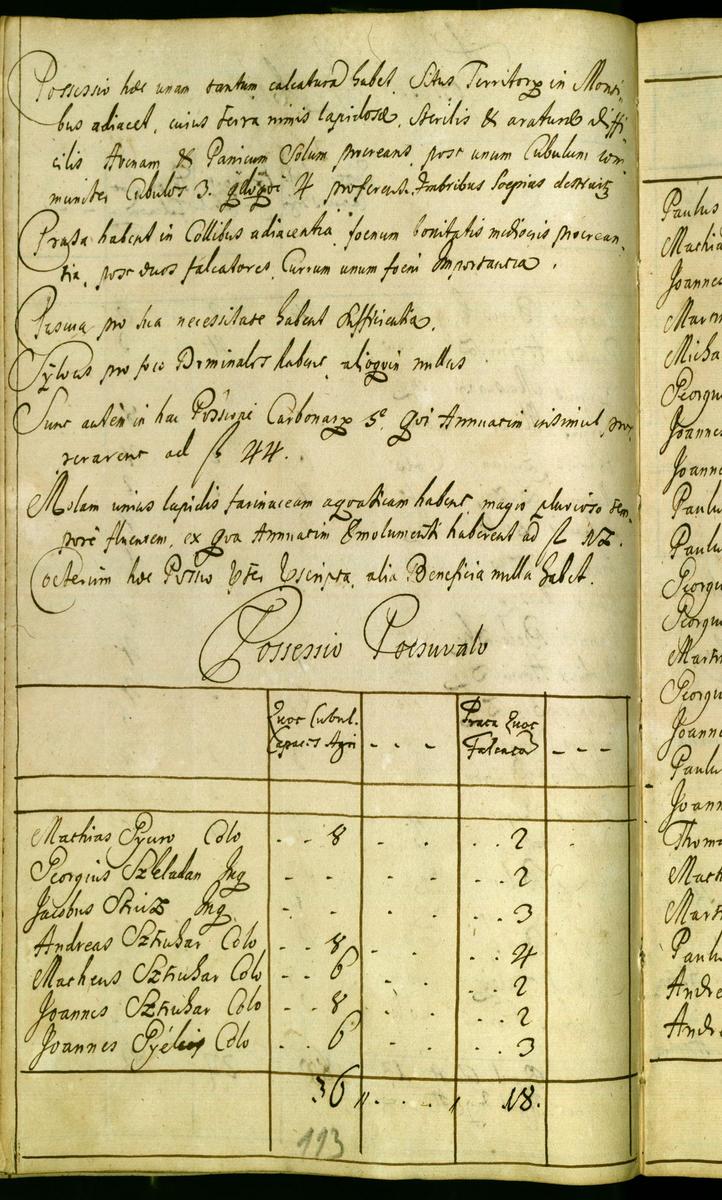 Possessio hæc unam tantum calcaturā habet. Situs Territory in Monti
bus adiacet, cuius terra nimis lapidosa, Sterilis & aratura diffi
cilis Avenam & Panicum Solum procreans, post unum Cubulum com
muniter Cubulos 3. 4 proferent. Imbribus Soepius destruitz
Prata habent in Collibus adiacentia foenum bonitatis mediocris procrean,
tia, post duos falcatores, Currum unum foeni Importantia.
Pascua pro sua necessitate habent Sufficientia.
Sylvas pro foco Dominales habent, alioquin nullas
Sunt autem in hac Possione Carbonary 5. qvi Annuatim insimul pro,
cerarent ad f 44.
Molam unius lapidis farinaceam aqvaticam habent, magis pluvioso tem-
pore fluentem, ex qva Annuatim Emolumenti haberent ad f 12.
Coeterum hæc Possio alia Beneficia nulla habet.
Possessio Potsuvalo
Quot Cubul. Capacis Agri - - - Prata Quot Falcato - - -
Mathias Pyuro Colo - - 8 - - . . 2 .
Georgius Szkladan Inq - - - - . . 2
Jacobus Struz Inq - - - - . . 3
Andreas Sztruhar Colo - - 8 - - . . 4
Matheus Sztruhar Colo - - 6 - - . . 2
Joannes Sztruhar Colo - - 8 - - . . 2
Joannes Colo - - 6 - - . . 3
36 " . . . . " 18.
113
Paulus
Mathia
Joannes
Martin
Micha
Georgiu
Joannes
Joanne
Paulu
Paulu
Georgi
Georgi
Marti
Georgi
Joanne
Paulu
Joann
Thoma
Math
Mart
Paulu
Andre
Andre